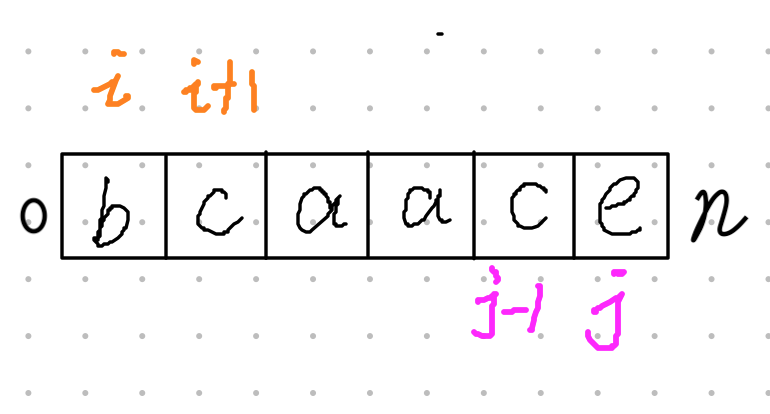 i i+1
0 b c a a c e n
j-1 j